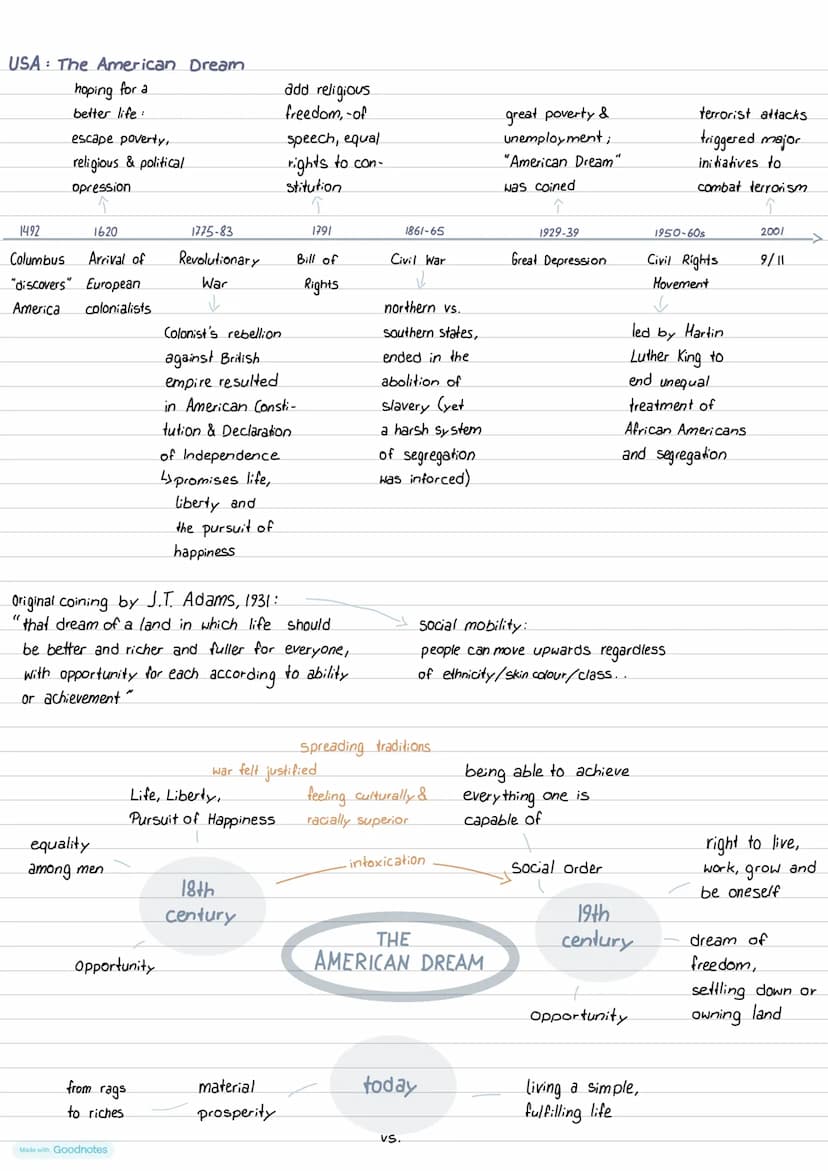 USA: The American Dream
hoping for a
better life:
escape poverty,
religious & political
opression
add religious
freedom,-of
speech, equal
rights to con-
stitution
great poverty &
unemployment;
"American Dream"
was coined
terrorist attacks
triggered major
initiatives to
combat terrorism
1492
Columbus
"discovers"
America
1620
Arrival of
European
colonialists
1775-83
Revolutionary
War
Colonist's rebellion
against British
empire resulted
in American Consti-
tution & Declaration
of Independence
↳promises life,
liberty and
the pursuit of
happiness
1791
Bill of
Rights
1861-65
Civil War
northern vs.
southern states,
ended in the
abolition of
slavery (yet
a harsh system
of segregation
was inforced)
1929-39
Great Depression
1950-60s
Civil Rights
Movement
led by Martin
Luther King to
end unequal
treatment of
African Americans
and segregation
2001
9/11
Original coining by J.T. Adams, 1931:
"that dream of a land in which life should
be better and richer and fuller for everyone,
with opportunity for each according to ability
or achievement"
social mobility:
people can move upwards regardless
of ethnicity/skin colour/class..
spreading traditions
war felt justified
feeling culturally &
racially superior
intoxication
Life, Liberty,
Pursuit of Happiness
equality
among men
18th
century
Opportunity
being able to achieve
everything one is
capable of
social order
right to live,
work, grow and
be oneself
19th
century
dream of
freedom,
settling down or
owning land
opportunity
THE
AMERICAN DREAM
from rags
to riches
material
prosperity
today
living a simple,
fulfilling life
vs.
Made with Goodnotes